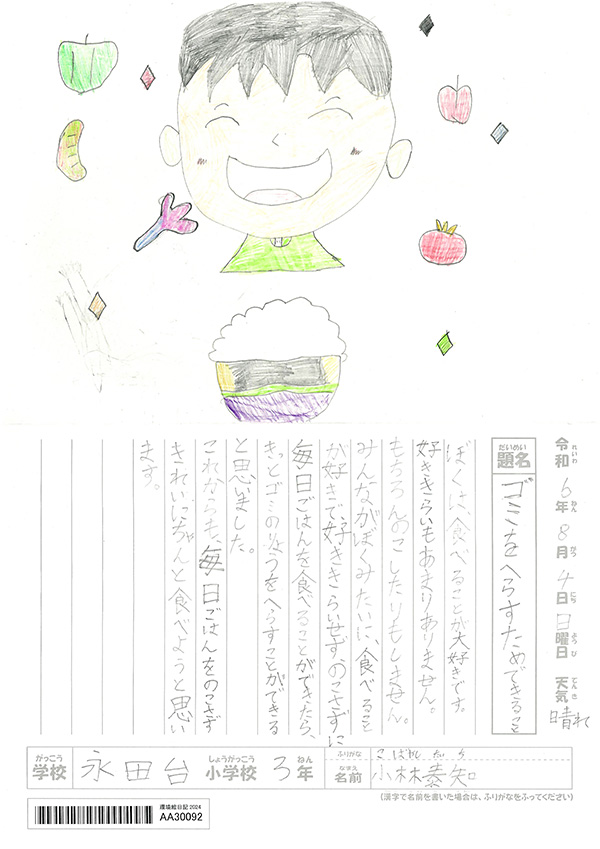 令和6年8月4日日曜日 天気 晴れ
れいわ ねん がつ にち ようび てんき
だいめい
題名 ゴミをへらすためできること
ぼくは、食べることが大好きです。
好ききらいもあまりありません。
もちろんのこしたりもしません。
みんながぼくみたいに、食べること
が好きで、好ききらいせず、のこさずに
毎日ごはんを食べることができたら、
きっとゴミのりょうをへらすことができる
と思いました。
これからも、毎日ごはんをのこさず
きれいにちゃんと食べようと思い
ます。
がっこう しょうがっこう ねん
学校 永田台 小学校 3年
ふりがな こばやし
なまえ
名前 小林泰知
(漢字で名前を書いた場合は、ふりがなをふってください)
環境絵日記 2024
AA30092